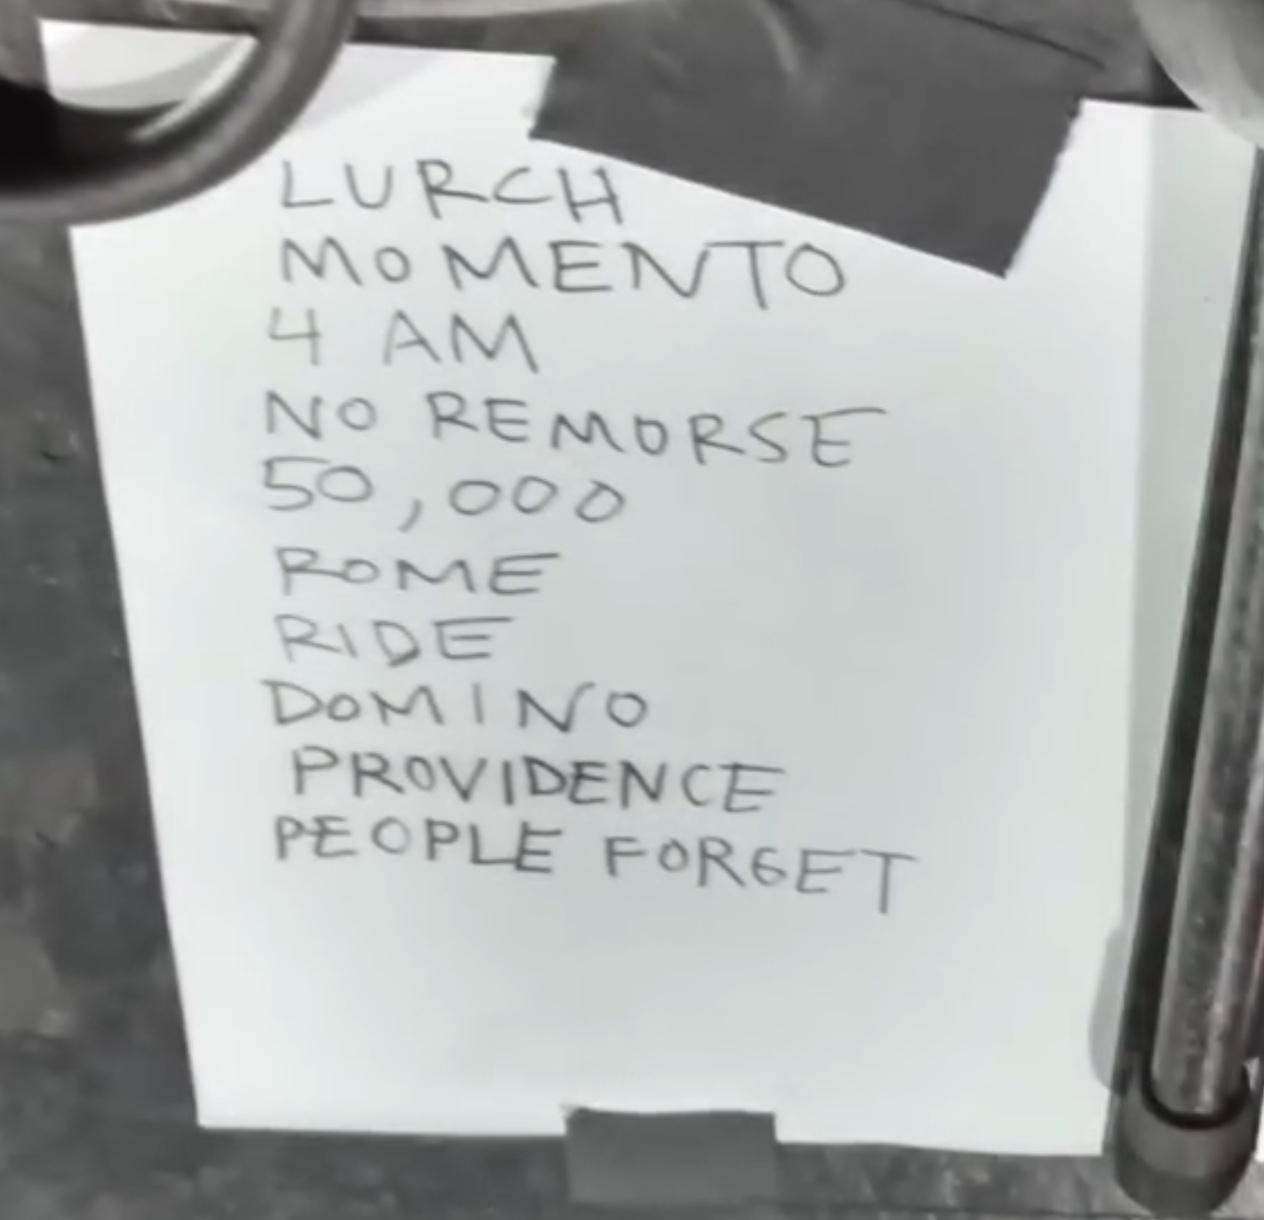 LURCH
MOMENTO
4 AM
NO REMORSE
50,000
ROME
RIDE
DOMINO
PROVIDENCE
PEOPLE FORGET